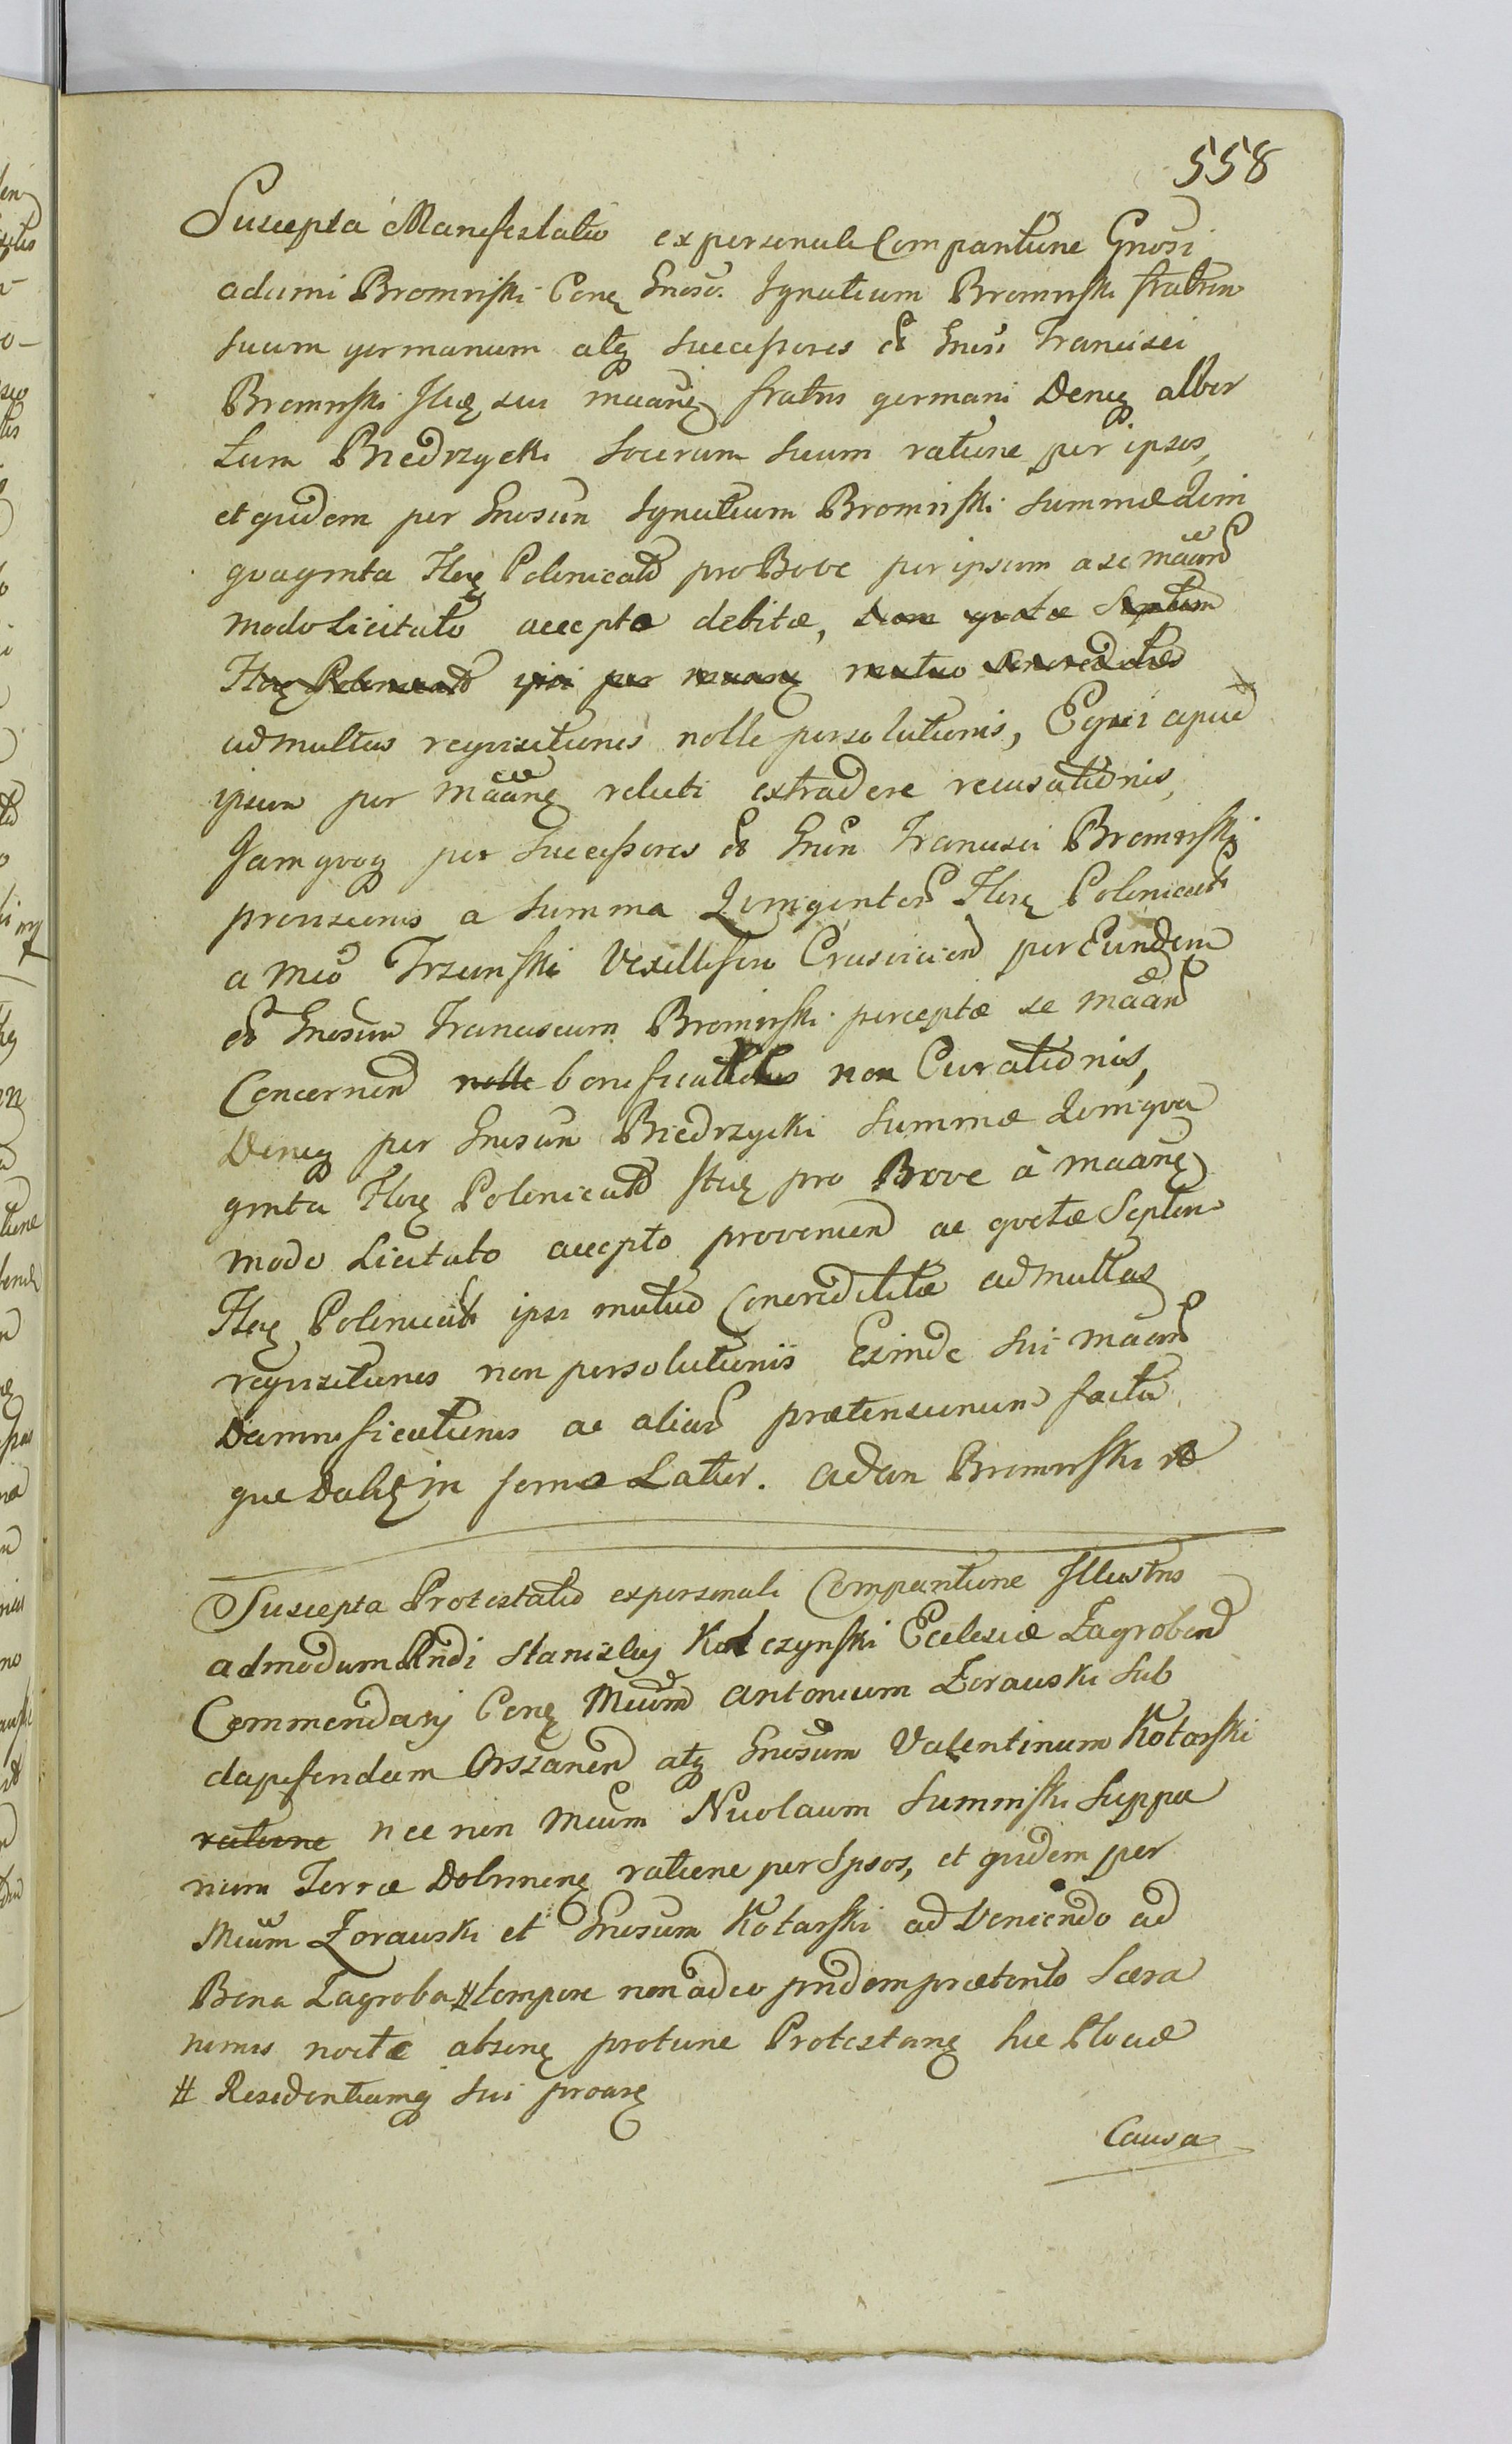 558
Suscepta Manifestatio ex personali Comparitione Gnosi
adami Bromirski Conq Gnosu. Ignatium Bromirski fratrem
suum germanum atq successores olim Gnosi Francisci
Bromirski Itiq sui maanq fratris germani Deniq alber
tum Biedrzycki socerum suum ratione per ipsos,
et quidem per Gnosum Ignatium Bromirski summæ Quin
quaginta Floq Polonicaliu pro Bove per ipsum a se maand
modo licitato acceptæ debitæ, non quotæ Septem
Floq Polonicaliu ipsi per maanq mutuo concreditæ
ad multas requisitiones nolle persolutionis, Equi apud
ipsum per maanq relicti extradere recusationis,
Jam quoq per Successores olim Gnosi Francisci Bromirski
provisionis a summa Quingentor Floq Polonicali
a Mco Trzcinski Vexillifero Crusvicien per Eundem
olim Gnosum Franciscum Bromirski perceptæ se maand
Concernen nolle bonificationis non Curationis,
Deniq per Gnosum Biedrzycki summæ Quinqua
ginta Floq Polonicaliu Itiq pro Bove à maanq
modo Licitato accepto provenien ac quotæ Septem
Floq Polonicali ipsi mutuo Concreditæ ad multas
requisitiones non persolutionis Exinde sui maand
Damnificationis ac aliar prætensionum facta
que Daliq in forma Latior. Adam Bromirski
Suscepta Protestatio ex personali Comparitione Illustris
admodum Rndi Stanislaj Kolczynski Ecclesiæ Zagroben
Commendarj Conq Mcum Antonium Zorawski Sub
dapiferidam Orszanen atq Gnosum Valentinum Kotarski
ratione nec non Mcum Nicolaum Suminski Suppa
rium Terræ Dobrinenq ratione per Ipsos, et quidem per
Mcum Zorawski et Gnosum Kotarski ad Veniendo ad
Bona Zagroba # tempore non adeo pridem præterito Sera
nimis nocte absenq protunc Protestanq hic Plociæ
# Residentiamq sui proanq
Causa